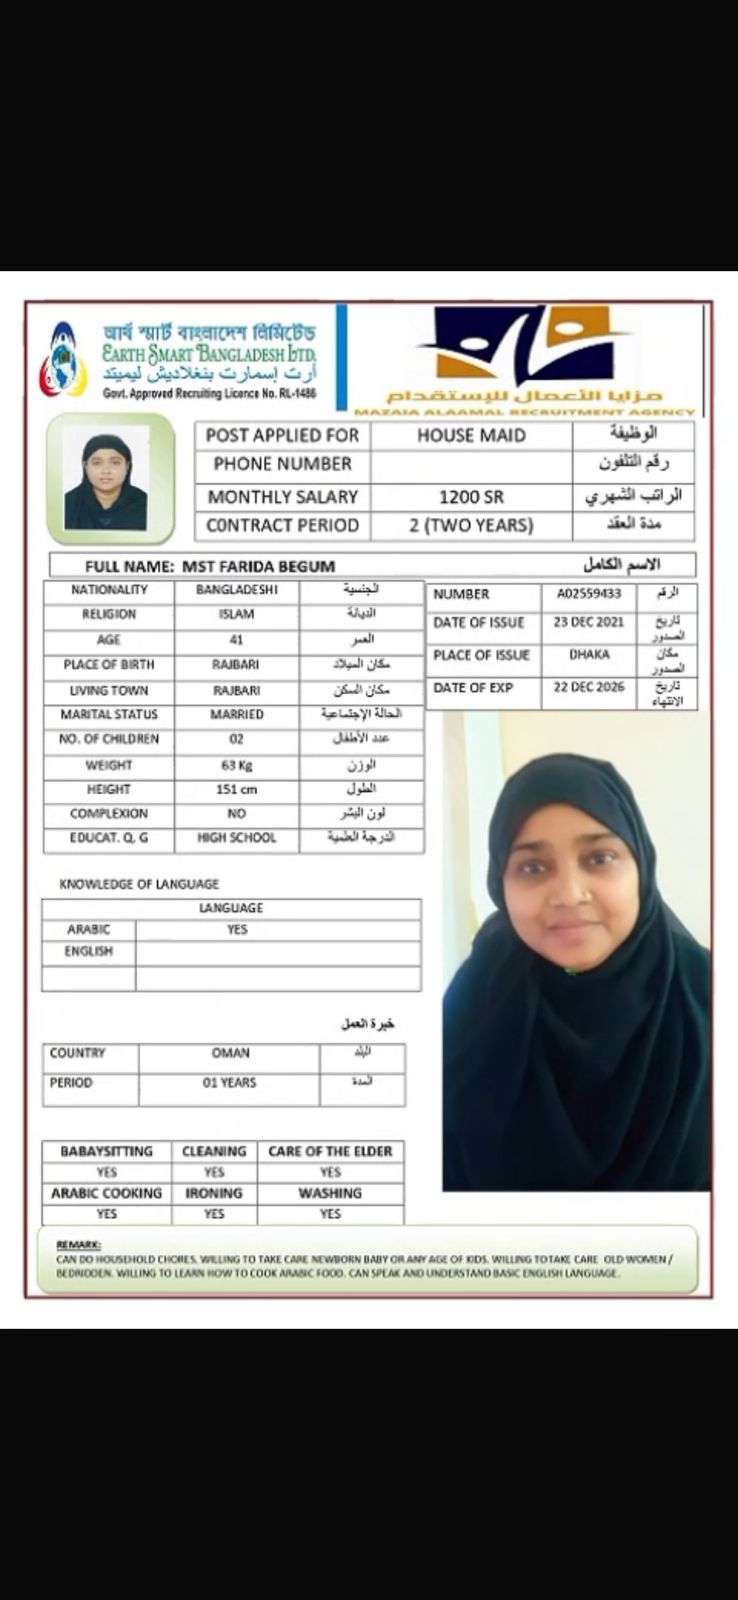 আর্থ স্মার্ট বাংলাদেশ লিমিটেড
EARTH SMART BANGLADESH LTD.
أرت إسمارت بنغلاديش ليميتد
Govt. Approved Recruiting Licence No. RL-1486
مزايا الأعمال للإستقدام
MAZAIA ALAAMAL RECRUITMENT AGENCY
POST APPLIED FOR HOUSE MAID الوظيفة
PHONE NUMBER رقم التلفون
MONTHLY SALARY 1200 SR الراتب الشهري
CONTRACT PERIOD 2 (TWO YEARS) مدة العقد
FULL NAME: MST FARIDA BEGUM الاسم الكامل
NATIONALITY BANGLADESHI الجنسية
RELIGION ISLAM الديانة
AGE 41 العمر
PLACE OF BIRTH RAJBARI مكان الميلاد
LIVING TOWN RAJBARI مكان السكن
MARITAL STATUS MARRIED الحالة الإجتماعية
NO. OF CHILDREN 02 عدد الأطفال
WEIGHT 63 Kg الوزن
HEIGHT 151 cm الطول
COMPLEXION NO لون البشر
EDUCAT. Q, G HIGH SCHOOL الدرجة العلمية
NUMBER A02559433 الرقم
DATE OF ISSUE 23 DEC 2021 تاريخ الصدور
PLACE OF ISSUE DHAKA مكان الصدور
DATE OF EXP 22 DEC 2026 تاريخ الانتهاء
KNOWLEDGE OF LANGUAGE
LANGUAGE
ARABIC YES
ENGLISH
خبرة العمل
COUNTRY OMAN البلد
PERIOD 01 YEARS المدة
BABAYSITTING CLEANING CARE OF THE ELDER
YES YES YES
ARABIC COOKING IRONING WASHING
YES YES YES
REMARK:
CAN DO HOUSEHOLD CHORES. WILLING TO TAKE CARE NEWBORN BABY OR ANY AGE OF KIDS. WILLING TOTAKE CARE OLD WOMEN /
BEDRIDDEN. WILLING TO LEARN HOW TO COOK ARABIC FOOD. CAN SPEAK AND UNDERSTAND BASIC ENGLISH LANGUAGE.